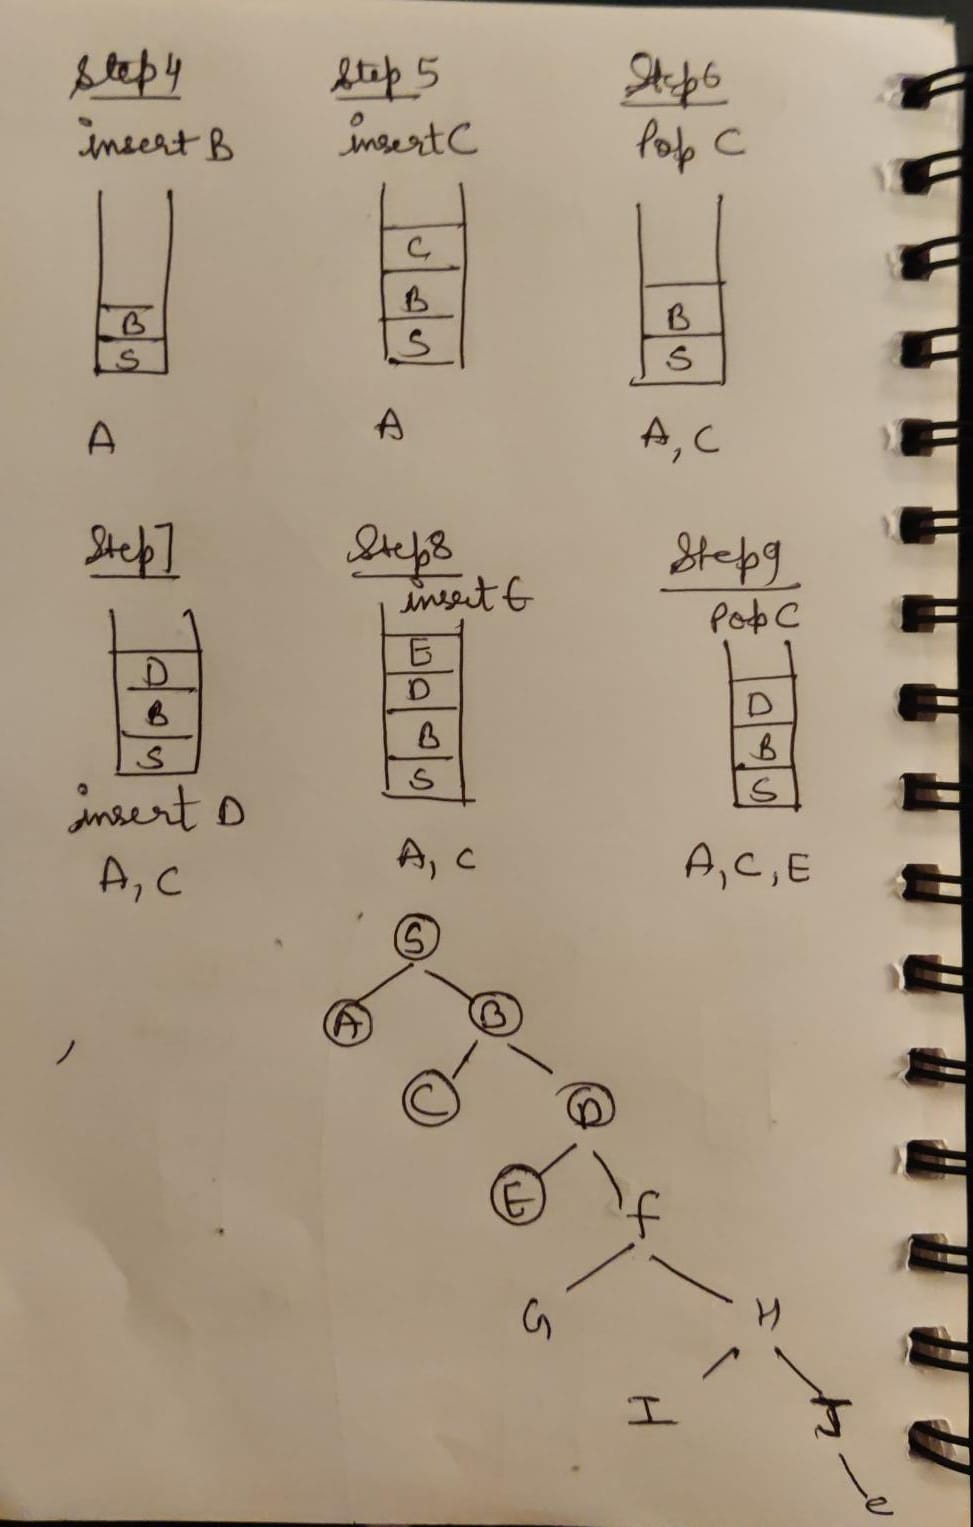 Step 4
insert B
B
S
A
Step 5
insert C
C
B
S
A
Step 6
Pop C
B
S
A, C
Step 7
D
B
S
insert D
A, C
Step 8
insert E
E
D
B
S
A, C
Step 9
Pop C
D
B
S
A, C, E
S
A B
C D
E f
G H
I
e